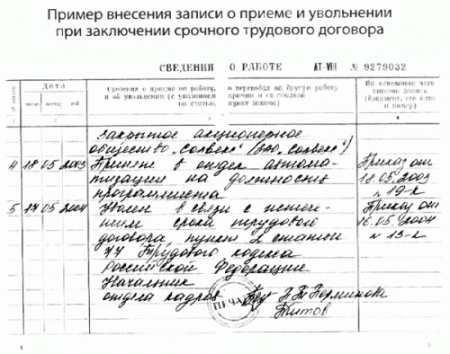 Пример внесения записи о приеме и увольнении
при заключении срочного трудового договора
СВЕДЕНИЯ О РАБОТЕ АТ-VIII № 9279032
Дата
Сведения о приеме на работу, о переводах на другую работу
и об увольнении (с указанием причин и со ссылкой
на статью, пункт закона)
На основании чего
внесена запись
(документ, его дата
и номер)
число месяц год
закрытое акционерное
общество „Солвекс" (ЗАО „Солвекс")
4 18 05 2003 Принят в отдел автома- Приказ от
тизации на должность 18.05.2003
программиста № 19-к
5 17 05 2004 Уволен в связи с истече- Приказ от
нием срока трудового 16.05.2004
договора, пункт 2 статьи № 13-к
77 Трудового кодекса
Российской Федерации
Начальник
отдела кадров
Титов
ПЕЧАТЬ
4 5